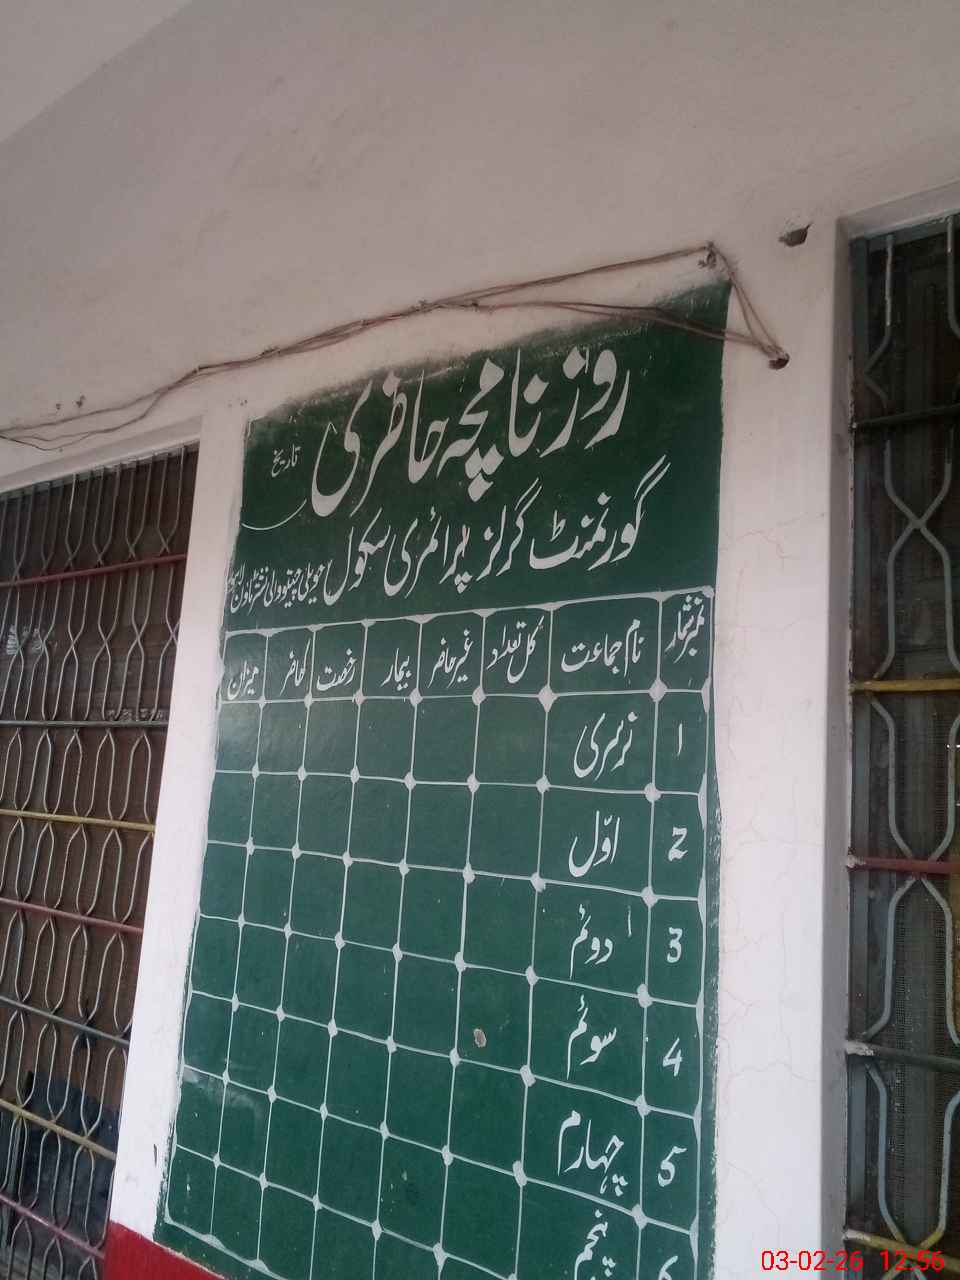 روزنامچہ حاضری
تاریخ
گورنمنٹ گرلز پرائمری سکول حویلی چنیوٹ والی
نمبر شمار نام جماعت کل تعداد غیر حاضر بیمار رخصت حاضر میزان
1 نرسری
2 اوّل
3 دوئم
4 سوئم
5 چہارم
6 پنجم
03-02-26 12:56